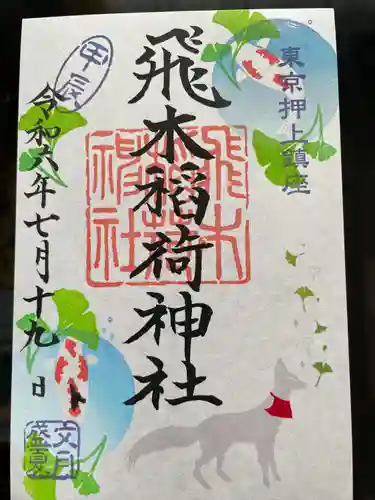 東京押上鎮座
飛木稲荷神社
飛木稲荷神社
甲辰
令和六年七月十九日
文月
盛夏